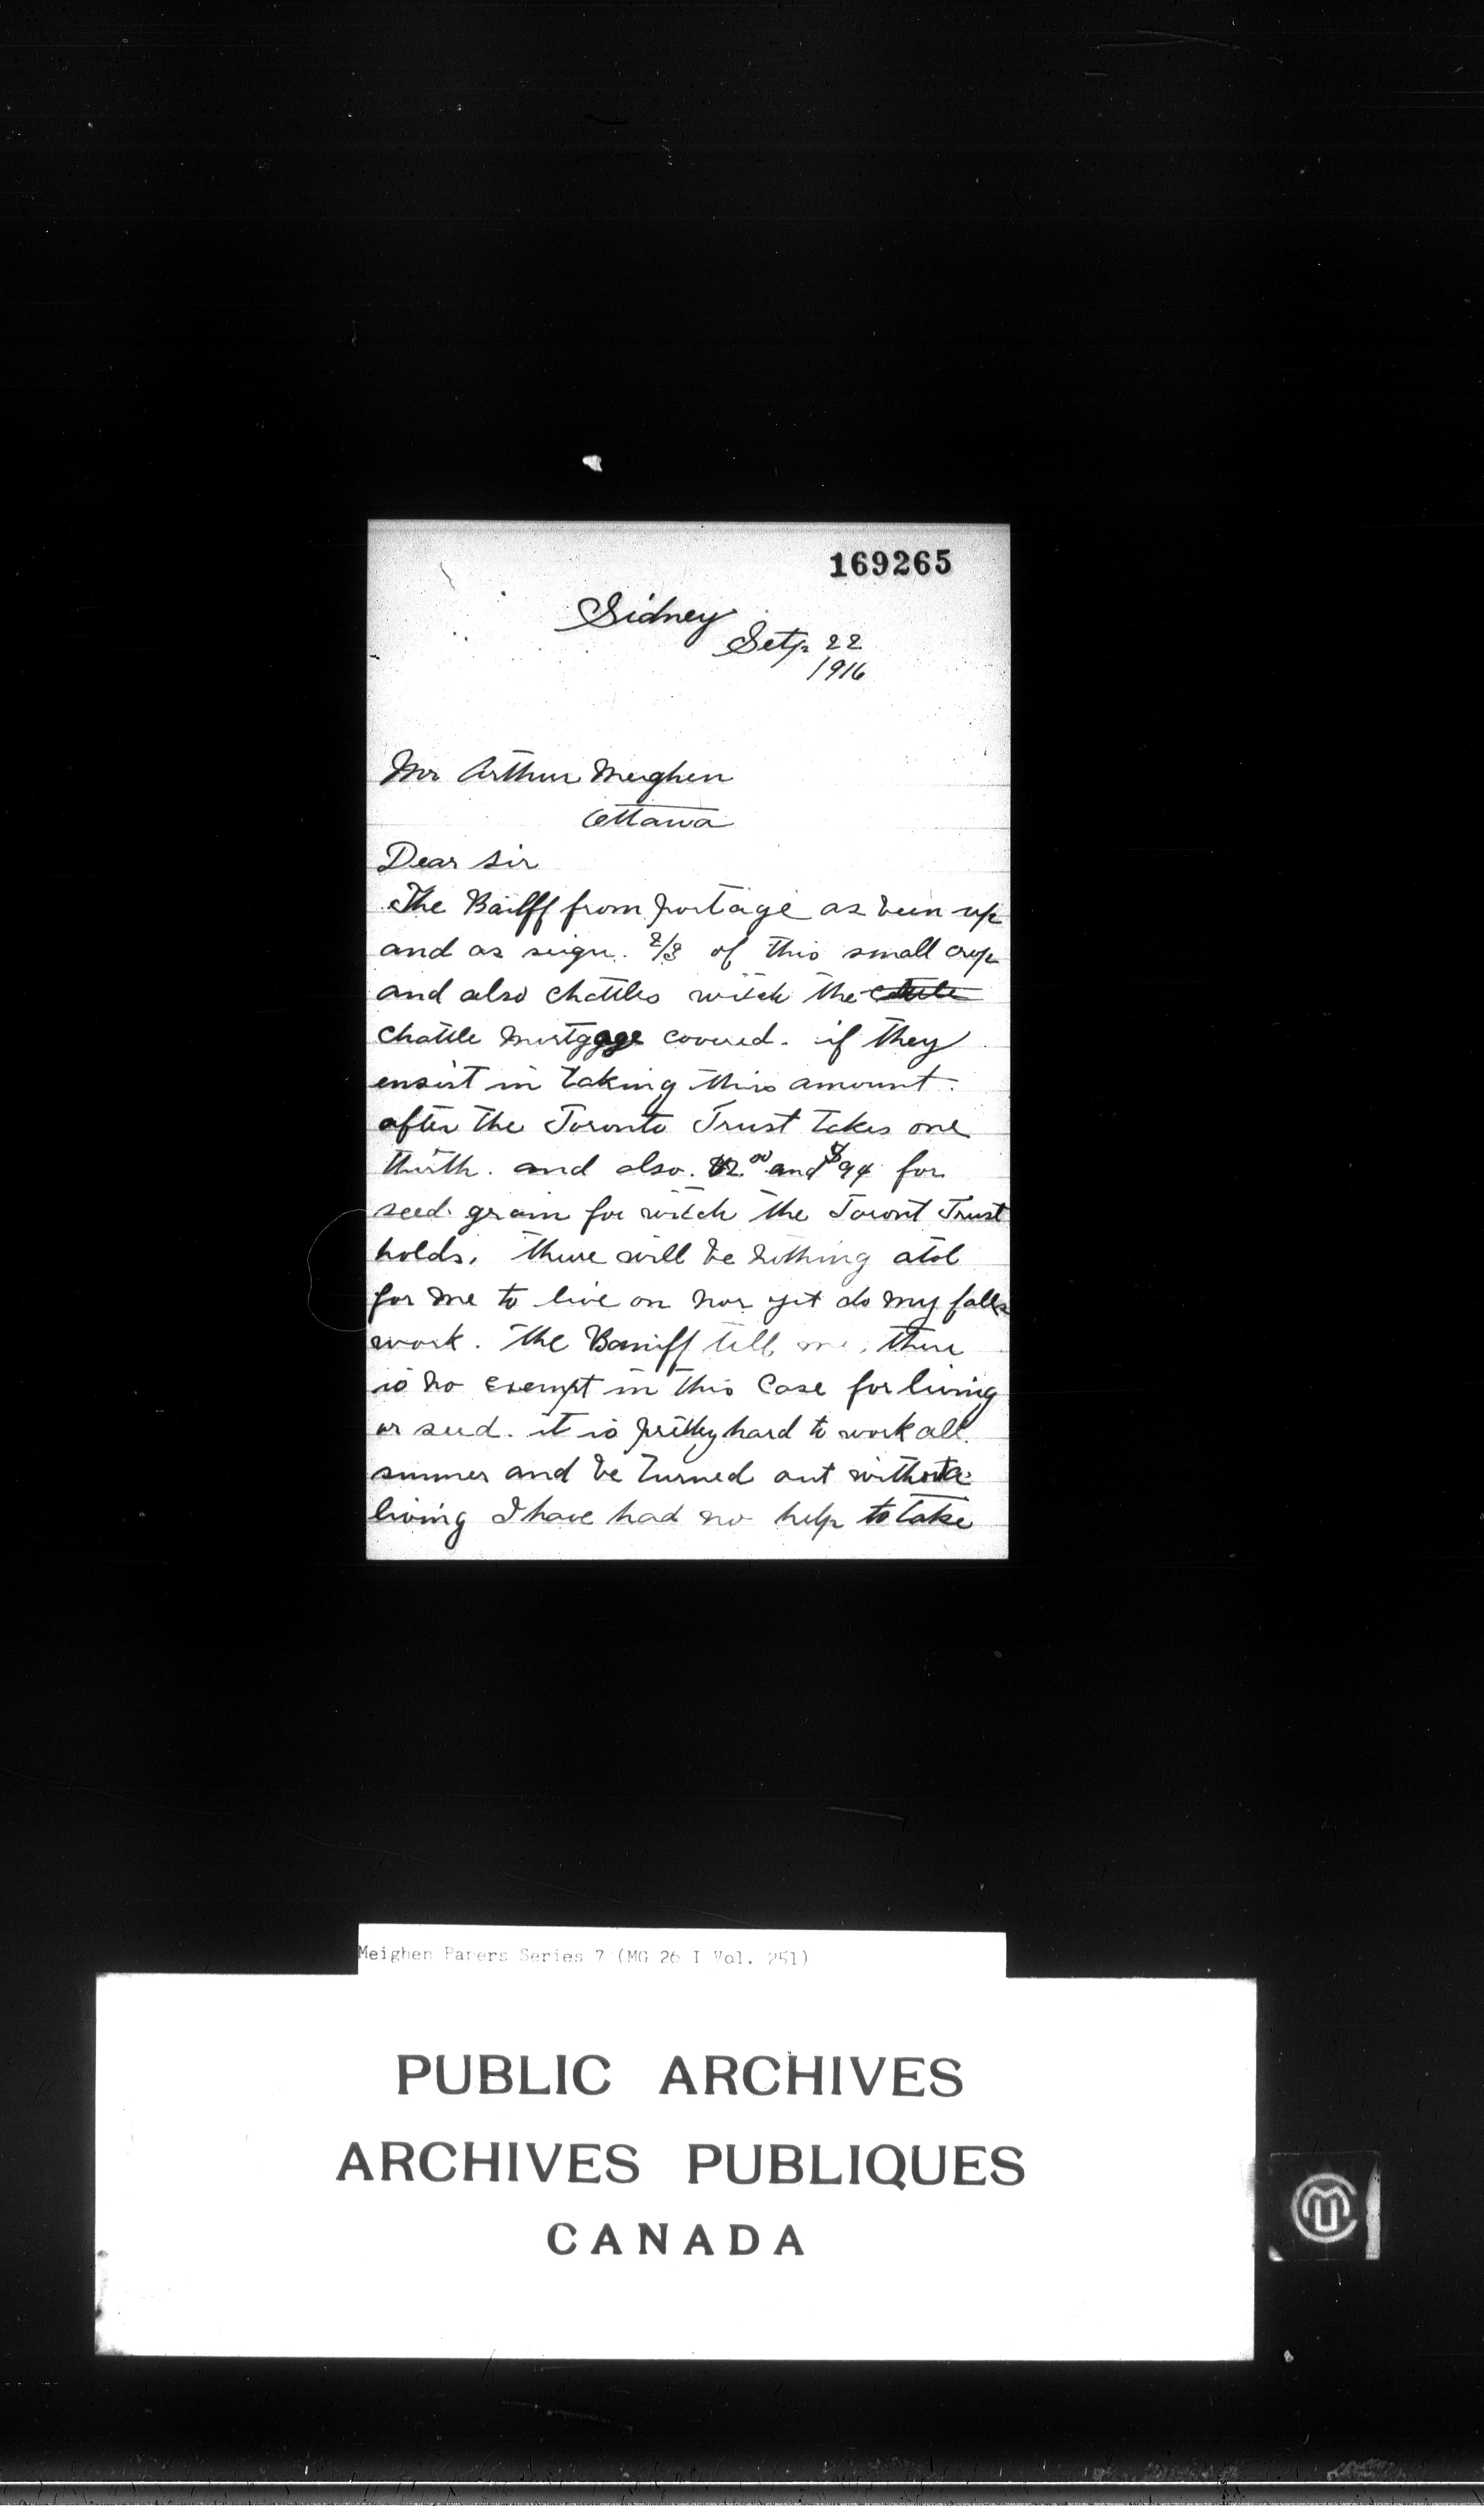 169265
Sidney
Setp 22
1916
Mr Arthur Meighen
Ottawa
Dear Sir
The Bailff from portage as been up
and as seign. 2/3 of this small crop
and also chattles witch the
chattle mortgage covered. if they
ensist in taking this amount.
after the Toronto Trust takes one
thirth. and also. and $94 for
seed grain for witch the Toront Trust
holds. there will be nothing atol
for me to live on nor yet do my falls
work. the Baniff tell me. there
is no exempt in this case for living
or seed. it is pritty hard to work all
summer and be turned out without a
living I have had no help to take
Meighen Papers Series 7 (MG 26 I Vol. 251)
PUBLIC ARCHIVES
ARCHIVES PUBLIQUES
CANADA